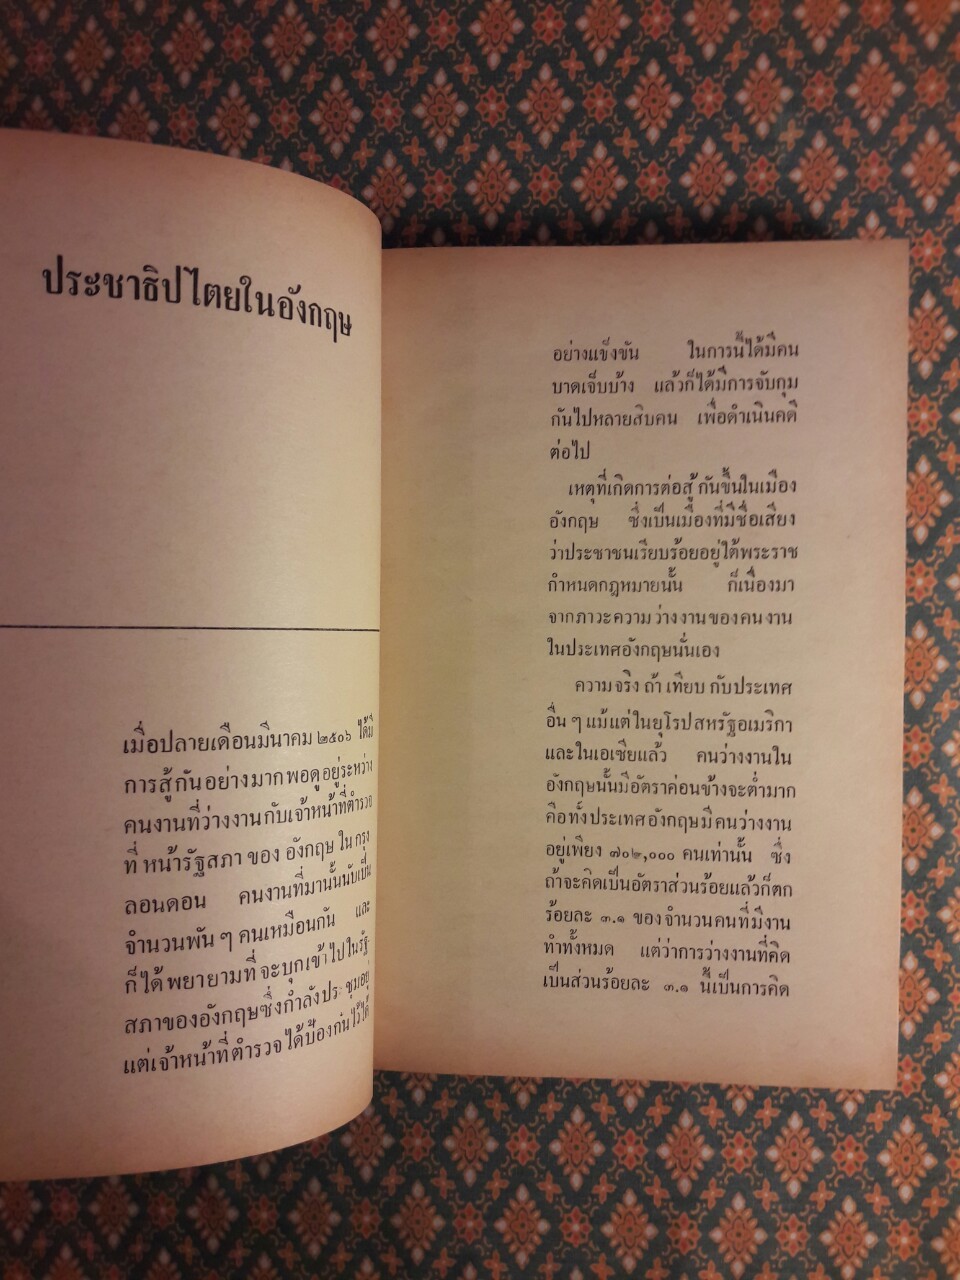 ประชาธิปไตยในอังกฤษ
เมื่อปลายเดือนมีนาคม ๒๕๐๖ ได้มี
การสู้กันอย่างมากพอดูอยู่ระหว่าง
คนงานที่ว่างงานกับเจ้าหน้าที่ตำรวจ
ที่ หน้ารัฐสภา ของ อังกฤษ ใน กรุง
ลอนดอน คนงานที่มานั้นนับเป็น
จำนวนพัน ๆ คนเหมือนกัน และ
ก็ได้ พยายามที่ จะบุกเข้าไปในรัฐ-
สภาของอังกฤษซึ่งกำลังประชุมอยู่
แต่เจ้าหน้าที่ตำรวจได้ป้องกันไว้ได้
อย่างแข็งขัน ในการนี้ได้มีคน
บาดเจ็บบ้าง แล้วก็ได้มีการจับกุม
กันไปหลายสิบคน เพื่อดำเนินคดี
ต่อไป
เหตุที่เกิดการต่อสู้ กันขึ้นในเมือง
อังกฤษ ซึ่งเป็นเมืองที่มีชื่อเสียง
ว่าประชาชนเรียบร้อยอยู่ใต้พระราช
กำหนดกฎหมายนั้น ก็เนื่องมา
จากภาวะความ ว่างงานของคนงาน
ในประเทศอังกฤษนั่นเอง
ความจริง ถ้า เทียบ กับประเทศ
อื่น ๆ แม้แต่ในยุโรป สหรัฐอเมริกา
และในเอเซียแล้ว คนว่างงานใน
อังกฤษนั้นมีอัตราค่อนข้างจะต่ำมาก
คือทั้งประเทศอังกฤษมีคนว่างงาน
อยู่เพียง ๗๐๒,๐๐๐ คนเท่านั้น ซึ่ง
ถ้าจะคิดเป็นอัตราส่วนร้อยแล้วก็ตก
ร้อยละ ๓.๑ ของจำนวนคนที่มีงาน
ทำทั้งหมด แต่ว่าการว่างงานที่คิด
เป็นส่วนร้อยละ ๓.๑ นี้เป็นการคิด